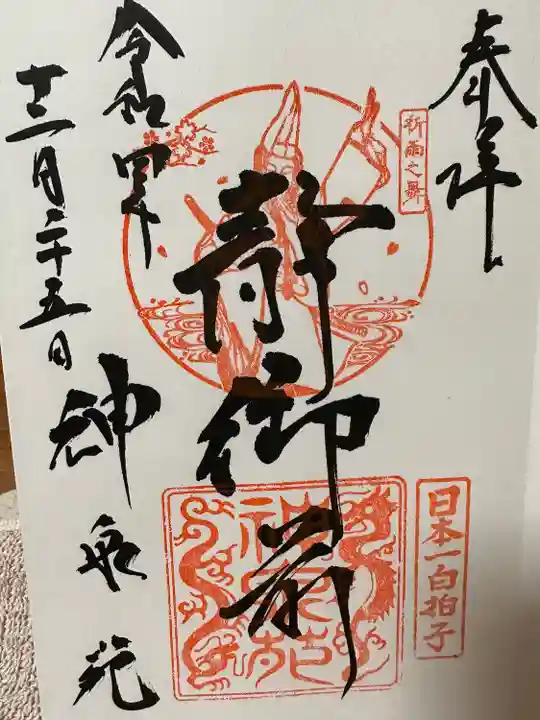 奉拝
祈雨之舞
静御前
日本一白拍子
神泉苑
令和四年
十二月二十五日
神泉苑